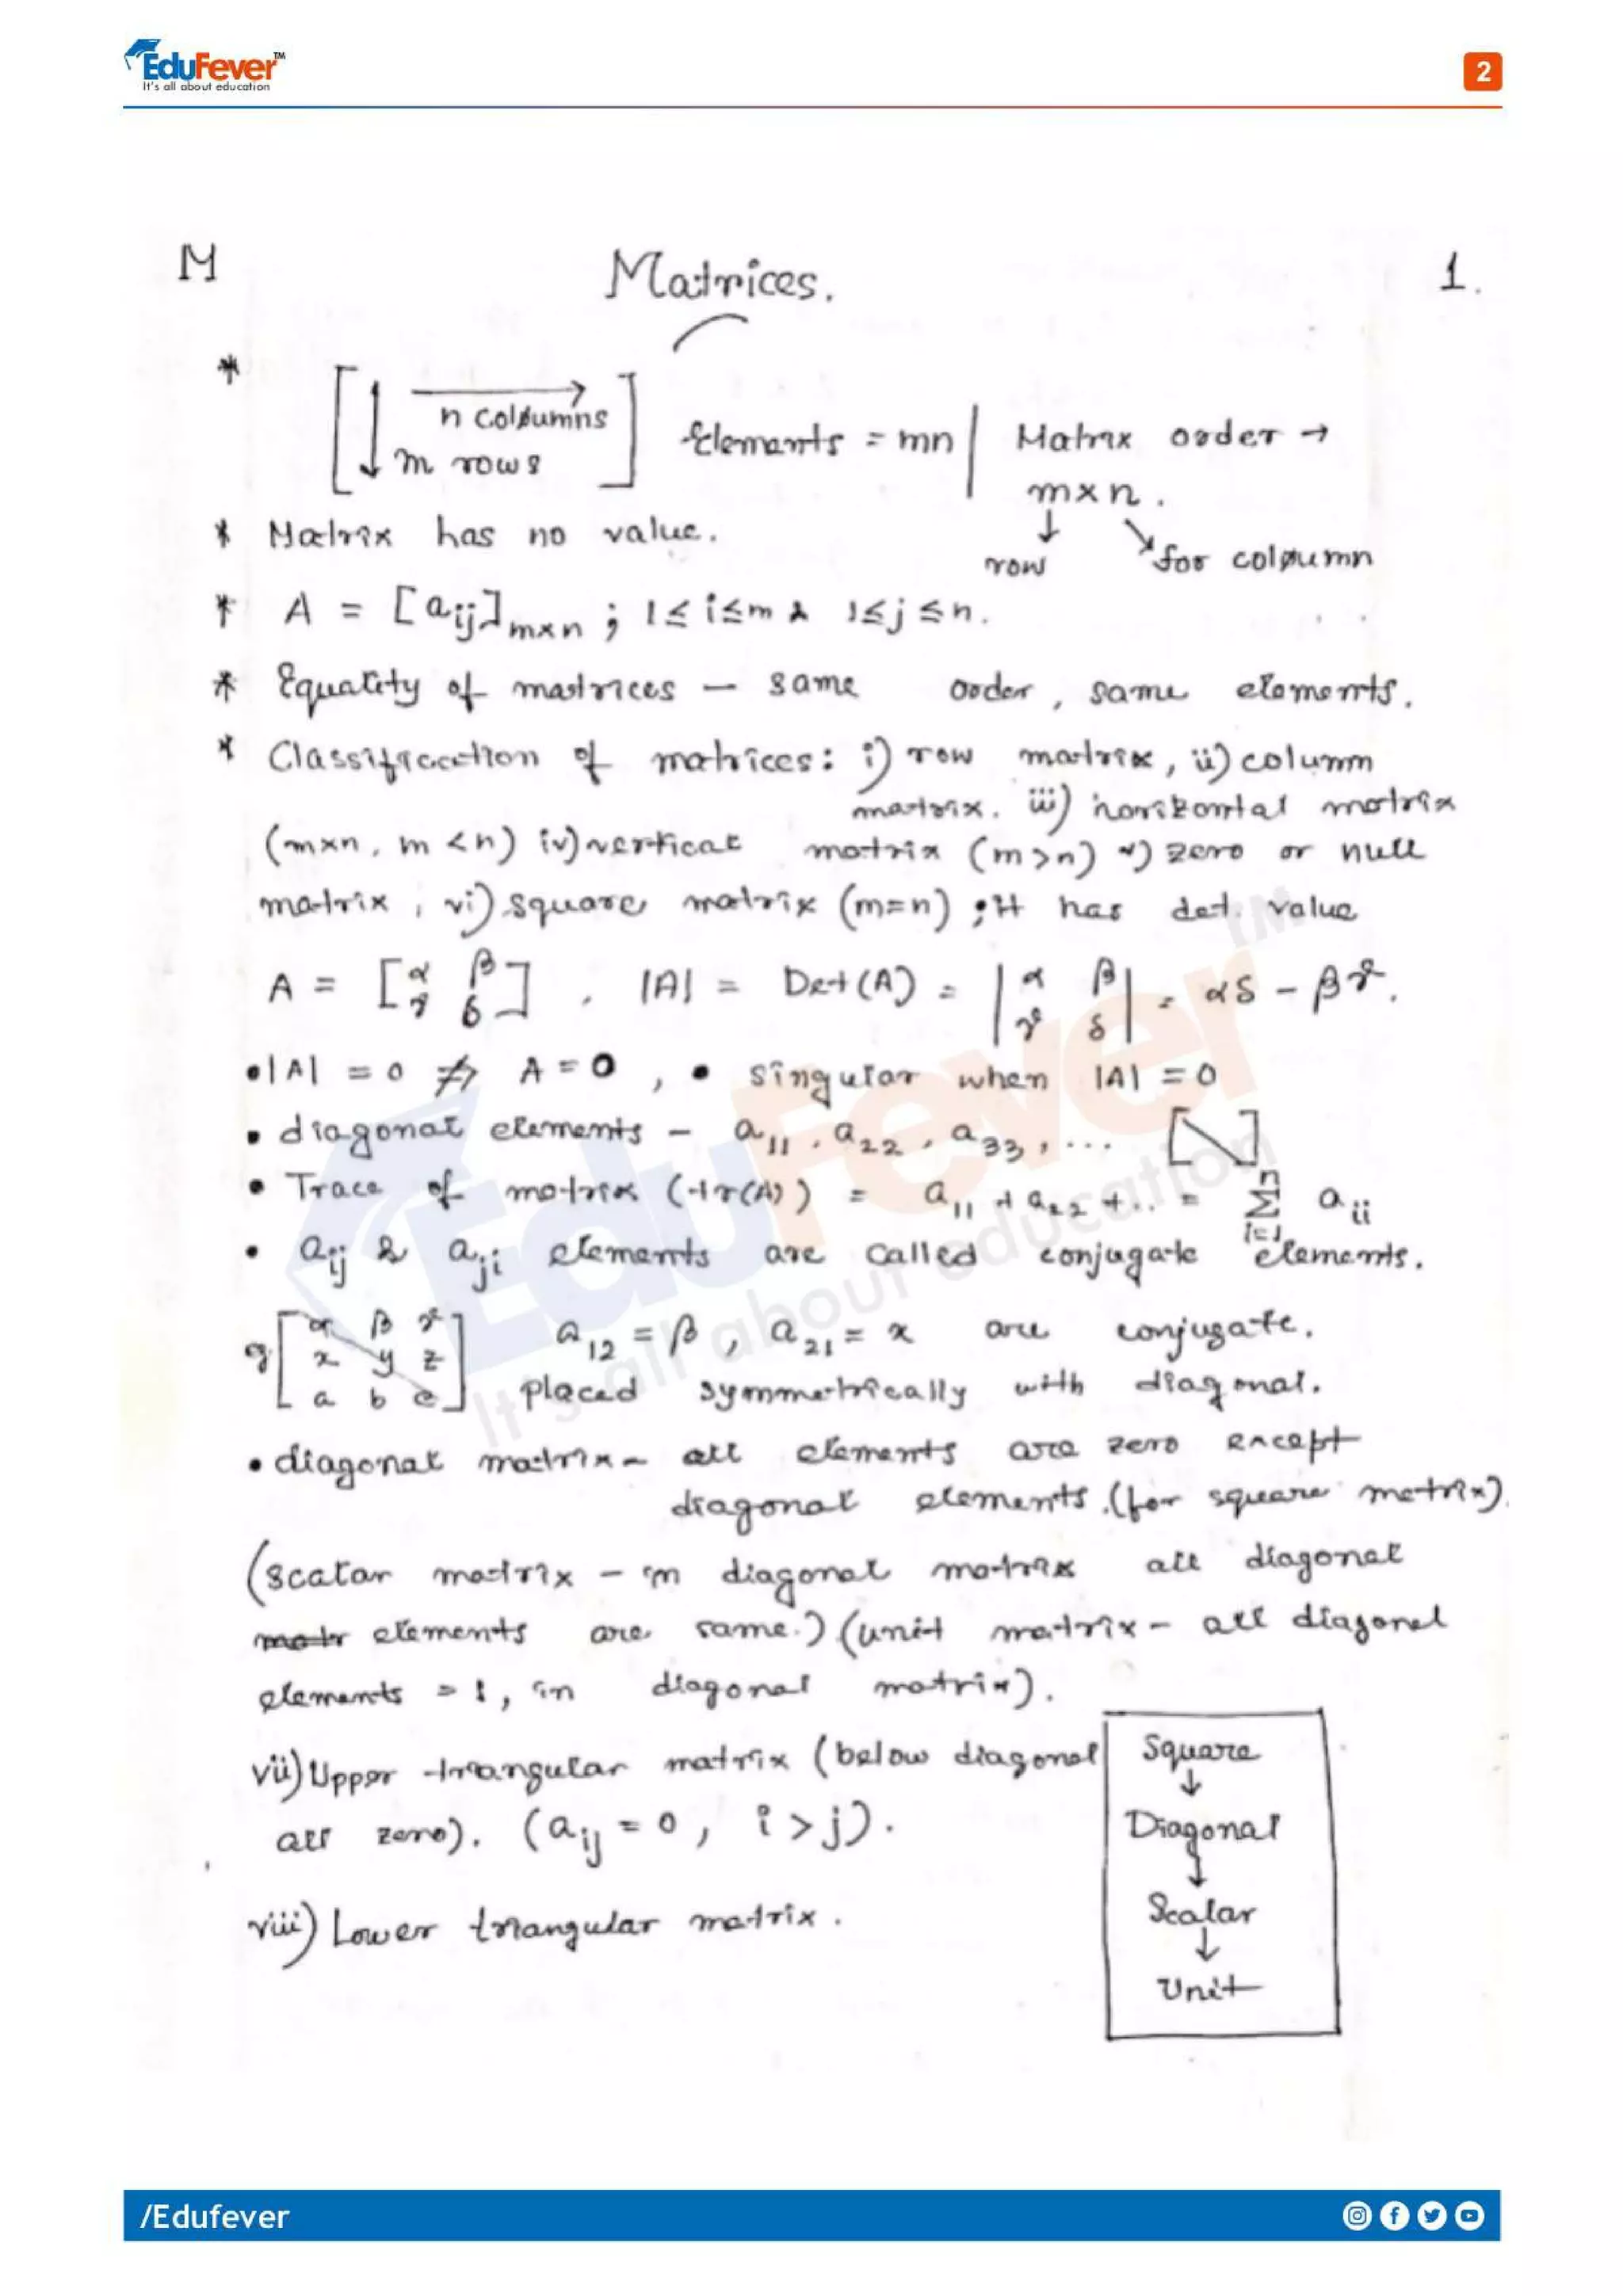 EduFever™
It's all about education
2
M Matrices. 1.
* [ n columns
m rows ] Elements = mn | Matrix order →
m×n.
↓ ↘
row for column
* Matrix has no value.
* A = [aij]m×n ; 1≤i≤m & 1≤j≤n.
* Equality of matrices – same order, same elements.
* Classification of matrices: i) row matrix, ii) column
matrix. iii) horizontal matrix
(m×n, m<n) iv) vertical matrix (m>n) v) zero or null
matrix, vi) square matrix (m=n) ; it has det. value
A = [α β
γ δ] , |A| = Det(A) = |α β
γ δ| = αδ – βγ.
• |A| = 0 ⇏ A = 0, • singular when |A| = 0
• diagonal elements – a11, a22, a33, ... [\]
• Trace of matrix (tr(A)) = a11 + a22 + .. = n∑i=1 aii
• aij & aji elements are called conjugate elements.
eg [α β γ
x y z
a b c] a12 = β, a21 = x are conjugate.
placed symmetrically with diagonal.
• diagonal matrix – all elements are zero except
diagonal elements. (for square matrix).
(scalar matrix – in diagonal matrix all diagonal
matr elements are same.) (unit matrix – all diagonal
elements = 1, in diagonal matrix).
vii) Upper triangular matrix (below diagonal
all zero). (aij = 0, i > j).
viii) Lower triangular matrix.
Square
↓
Diagonal
↓
Scalar
↓
Unit
EduFever™
It's all about education
/Edufever